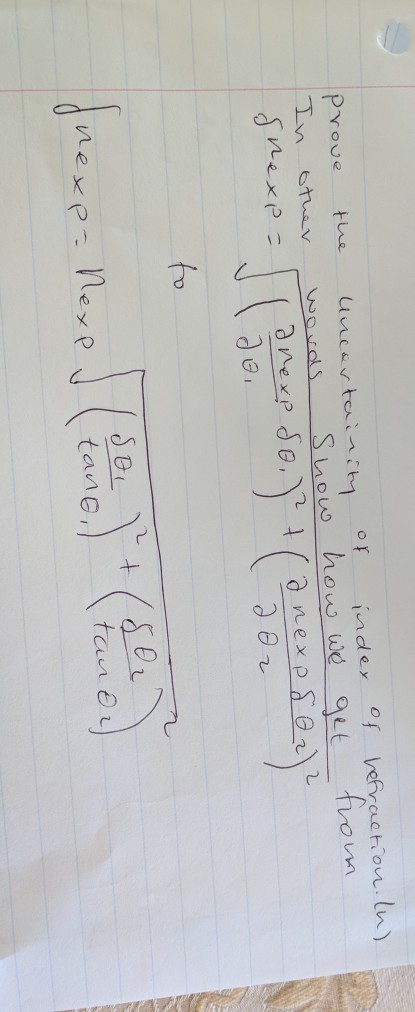 prove the uncertainity of index of refraction.(n)
In other words show how we get from
δnexp = √(∂nexp/∂θ₁ δθ₁)² + (∂nexp/∂θ₂ δθ₂)²
to
δnexp = nexp √(δθ₁/tanθ₁)² + (δθ₂/tanθ₂)²